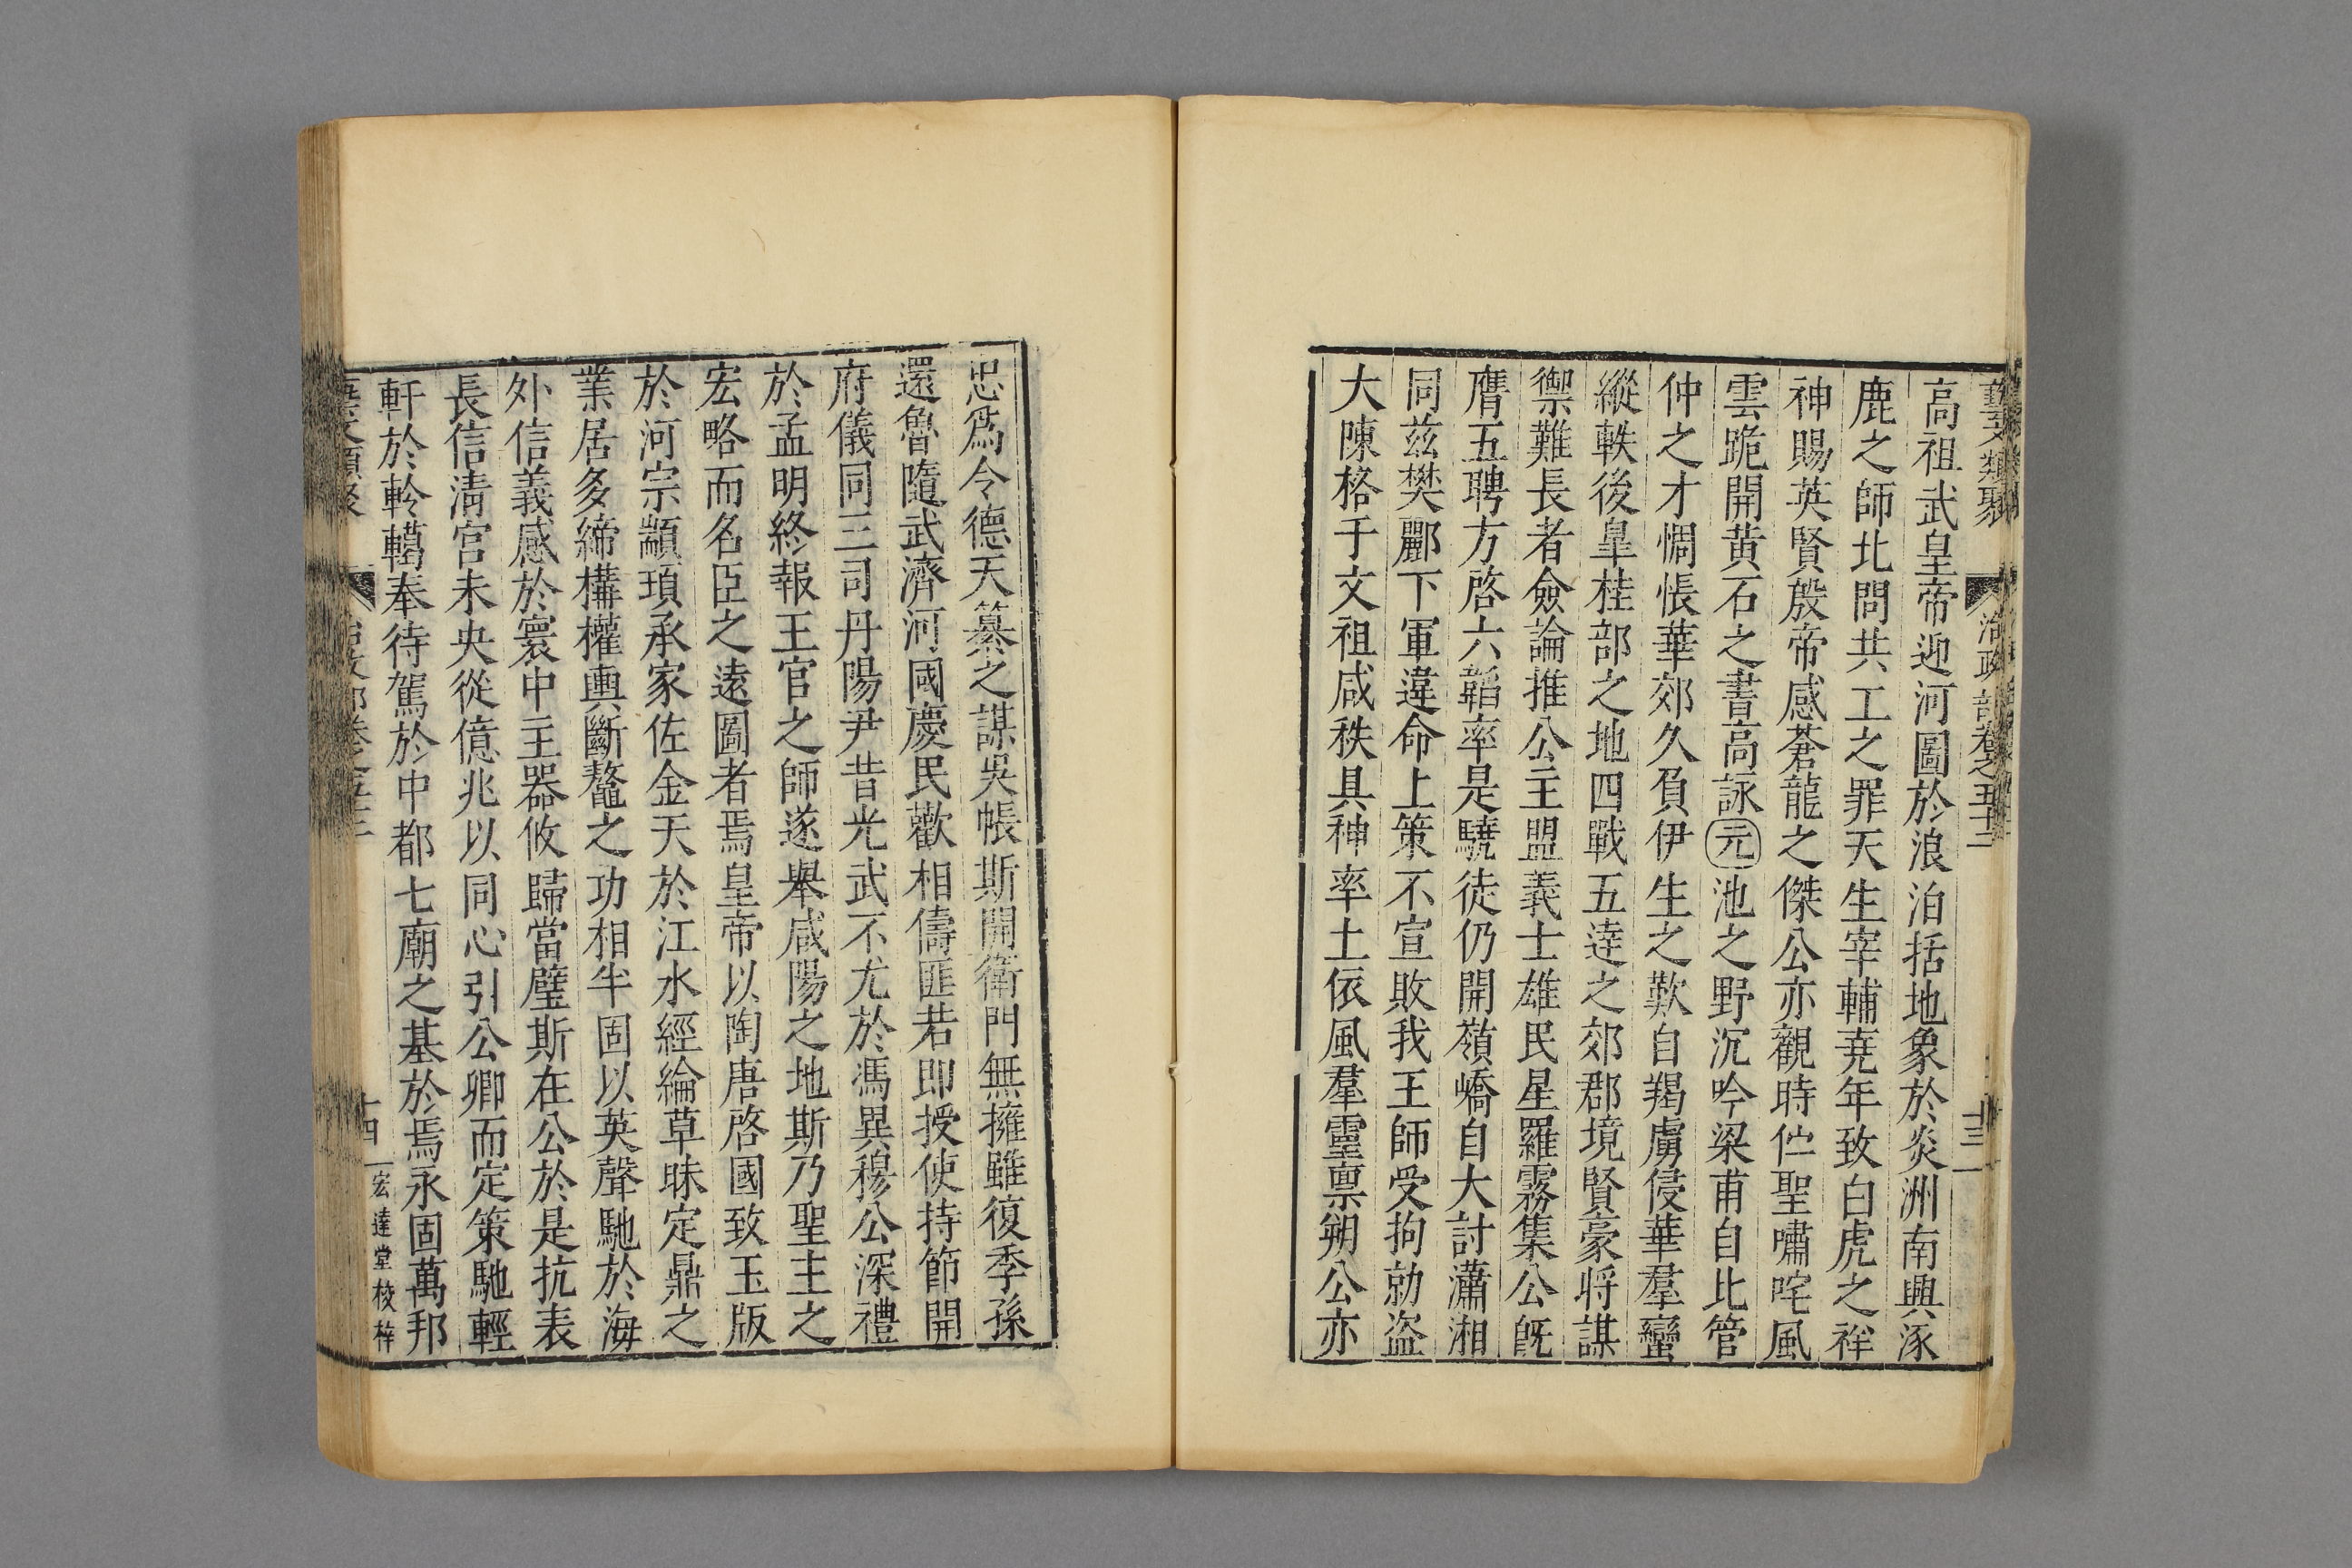 藝文類聚 治政部卷之五十二 十三
高祖武皇帝迎河圖於浪泊括地象於炎洲南興涿
鹿之師北問共工之罪天生宰輔堯年致白虎之祥
神賜英賢殷帝感蒼龍之傑公亦觀時伫聖嘯咤風
雲跪開黄石之書高詠元池之野沉吟梁甫自比管
仲之才惆悵華郊久負伊生之歎自羯虜侵華羣蠻
縱軼後皐桂部之地四戰五達之郊郡境賢豪将謀
禦難長者僉論推公主盟義士雄民星羅霧集公旣
膺五聘方啓六韜率是驍徒仍開嶺嶠自大討瀟湘
同兹樊酈下軍違命上策不宣敗我王師受拘勍盗
大陳格于文祖咸秩具神率土依風羣靈禀朔公亦
忠爲令德天纂之謀吳帳斯開衛門無擁雖復季孫
還魯隨武濟河國慶民歡相儔匪若即授使持節開
府儀同三司丹陽尹昔光武不尤於馮異穆公深禮
於孟明終報王官之師遂舉咸陽之地斯乃聖主之
宏略而名臣之遠圖者焉皇帝以陶唐啓國致玉版
於河宗顓頊承家佐金天於江水經綸草昧定鼎之
業居多締構權輿斷鼇之功相半固以英聲馳於海
外信義感於寰中主器攸歸當璧斯在公於是抗表
長信清宫未央從億兆以同心引公卿而定策馳輕
軒於軨轕奉待駕於中都七廟之基於焉永固萬邦
十四 宏達堂校梓